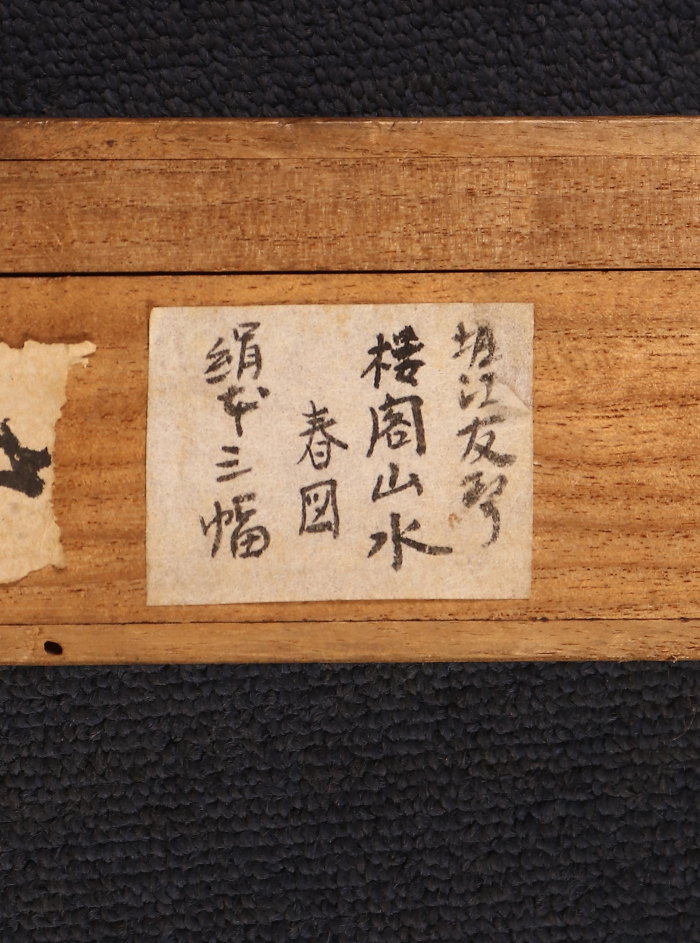 堀江友聲
楼閣山水
春図
絹本三幅